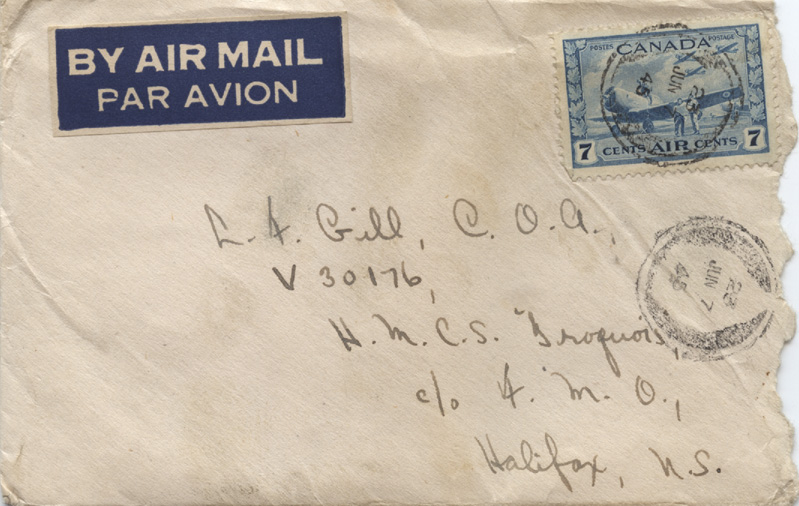 BY AIR MAIL
PAR AVION
POSTES CANADA POSTAGE
7 CENTS AIR CENTS 7
23
JUN 7
45
L. F. Gill, C. O. A.,
V 30176,
H. M. C. S. "Iroquois,
c/o F. M. O.,
Halifax, N.S.
23
JUN 7
45